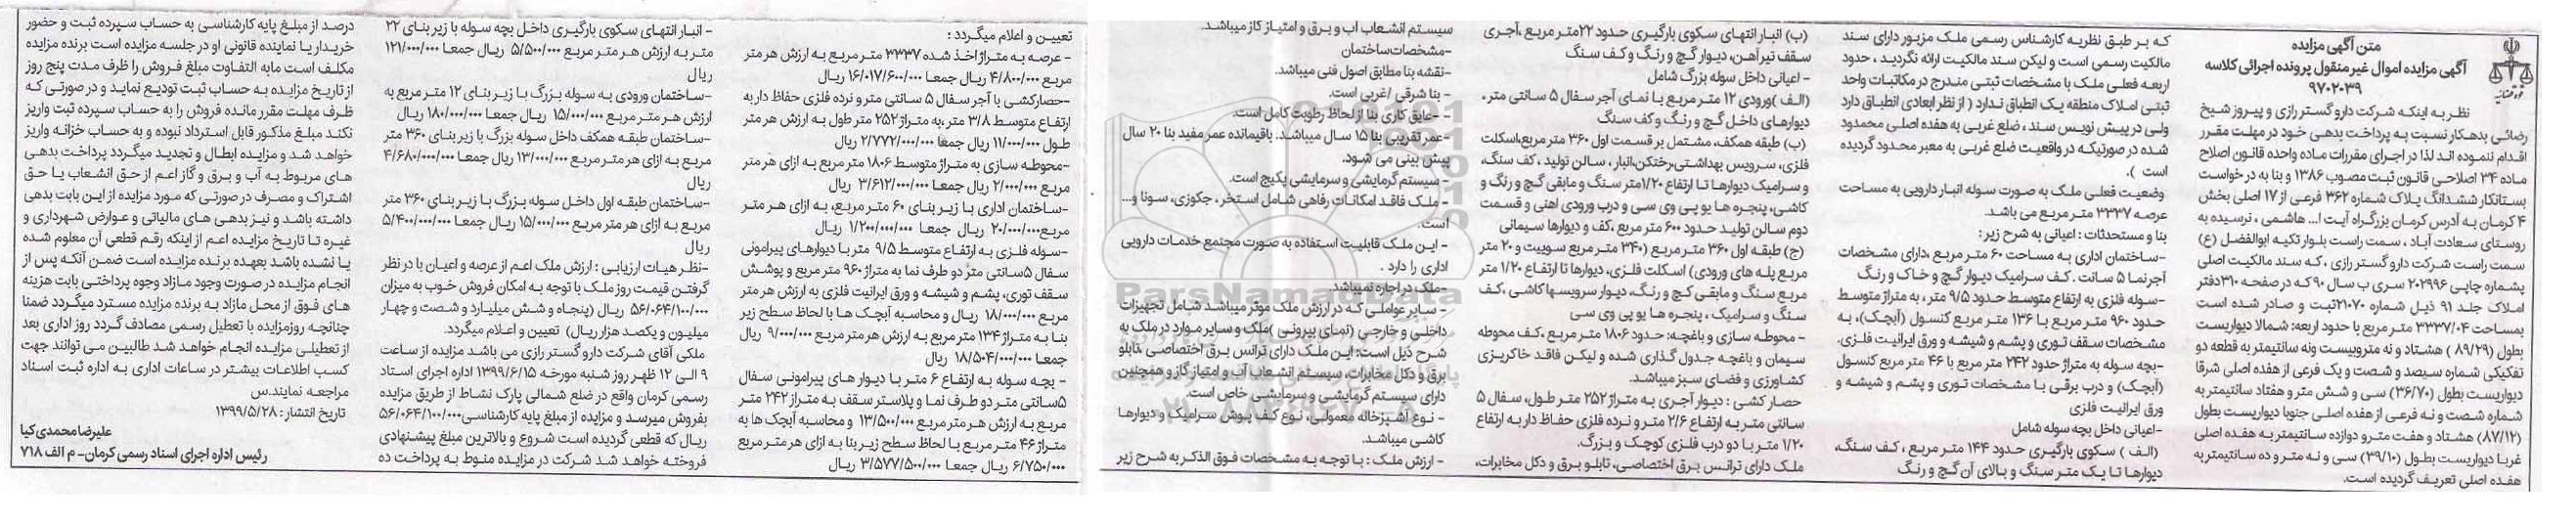 متن آگهی مزایده
آگهی مزایده اموال غیر منقول پرونده اجرائی کلاسه
۹۷۰۲۰۳۹
نظر به اینکه شرکت دارو گستر رازی و پیروز شیخ
رضائی بدهکار نسبت به پرداخت بدهی خود در مهلت مقرر
اقدام ننموده اند لذا در اجرای مقررات ماده واحده قانون اصلاح
ماده ۳۴ اصلاحی قانون ثبت مصوب ۱۳۸۶ و بنا به درخواست
بستانکار ششدانگ پلاک شماره ۳۶۲ فرعی از ۱۷ اصلی بخش
۴ کرمان به آدرس کرمان بزرگراه آیت ا... هاشمی ، نرسیده به
روستای سعادت آباد ، سمت راست بلوار تکیه ابوالفضل (ع)
سمت راست شرکت دارو گستر رازی ، که سند مالکیت اصلی
بشماره چاپی ۲۰۲۹۹۶ سری ب سال ۹۰ که در صفحه ۳۱۰ دفتر
املاک جلد ۹۱ ذیل شماره ۲۱۰۷۰ ثبت و صادر شده است
بمساحت ۳۳۳۷/۰۴ متر مربع با حدود اربعه: شمالا دیواریست
بطول (۸۹/۲۹ ) هشتاد و نه متر و بیست ونه سانتیمتر به قطعه دو
تفکیکی شماره سیصد و شصت و یک فرعی از هفده اصلی شرقا
دیواریست بطول (۳۶/۷۰) سی و شش متر و هفتاد سانتیمتر به
شماره شصت و نه فرعی از هفده اصلی جنوبا دیواریست بطول
(۸۷/۱۲) هشتاد و هفت متر و دوازده سانتیمتر به هفده اصلی
غربا دیواریست بطول (۳۹/۱۰) سی و نه متر و ده سانتیمتر به
هفده اصلی تعریف گردیده است.
که بر طبق نظریه کارشناس رسمی ملک مزبور دارای سند
مالکیت رسمی است و لیکن سند مالکیت ارائه نگردید ، حدود
اربعه فعلی ملک با مشخصات ثبتی مندرج در مکاتبات واحد
ثبتی املاک منطقه یک انطباق ندارد ( از نظر ابعادی انطباق دارد
ولی در پیش نویس سند ، ضلع غربی به هفده اصلی محدود
شده در صورتیکه در واقعیت ضلع غربی به معبر محدود گردیده
است ).
وضعیت فعلی ملک به صورت سوله انبار دارویی به مساحت
عرصه ۳۳۳۷ متر مربع می باشد.
بنا و مستحدثات : اعیانی به شرح زیر :
-ساختمان اداری به مساحت ۶۰ متر مربع ،دارای مشخصات
آجرنما ۵ سانت . کف سرامیک دیوار گچ و خاک و رنگ
-سوله فلزی به ارتفاع متوسط حدود ۹/۵ متر ، به متراژ متوسط
حدود ۹۶۰ متر مربع با ۱۳۶ متر مربع کنسول (آبچک)، به
مشخصات سقف توری و پشم و شیشه و ورق ایرانیت فلزی.
-بچه سوله به متراژ حدود ۲۴۲ متر مربع با ۴۶ متر مربع کنسول
(آبچک) و درب برقی با مشخصات توری و پشم و شیشه و
ورق ایرانیت فلزی
-اعیانی داخل بچه سوله شامل
(الف ) سکوی بارگیری حدود ۱۴۴ متر مربع ، کف سنگ،
دیوارها تا یک متر سنگ و بالای آن گچ و رنگ
(ب) انبار انتهای سکوی بارگیری حدود ۲۲متر مربع ،آجری
سقف تیرآهن، دیوار گچ و رنگ و کف سنگ
- اعیانی داخل سوله بزرگ شامل
(الف )ورودی ۱۲ متر مربع با نمای آجر سفال ۵ سانتی متر ،
دیوارهای داخل گچ و رنگ و کف سنگ
(ب) طبقه همکف، مشتمل بر قسمت اول ۳۶۰ متر مربع،اسکلت
فلزی، سرویس بهداشتی،رختکن،انبار ، سالن تولید ، کف سنگ،
و سرامیک دیوارها تا ارتفاع ۱/۲۰متر سنگ و مابقی گچ و رنگ و
کاشی، پنجره ها یو پی وی سی و درب ورودی اهنی و قسمت
دوم سالن تولید حدود ۶۰۰ متر مربع ،کف و دیوارها سیمانی
(ج) طبقه اول ۳۶۰ متر مربع (۳۴۰ متر مربع سوییت و ۲۰ متر
مربع پله های ورودی) اسکلت فلزی، دیوارها تا ارتفاع ۱/۲۰ متر
مربع سنگ و مابقی کچ و رنگ، دیوار سرویسها کاشی ، کف
سنگ و سرامیک ، پنجره ها یو پی وی سی
- محوطه سازی و باغچه: حدود ۱۸۰۶ متر مربع ،کف محوطه
سیمان و باغچه جدول گذاری شده و لیکن فاقد خاکریزی
کشاورزی و فضای سبز میباشد.
حصار کشی : دیوار آجری به متراژ ۲۵۲ متر طول، سفال ۵
سانتی متر به ارتفاع ۲/۶ متر و نرده فلزی حفاظ دار به ارتفاع
۱/۲۰ متر با دو درب فلزی کوچک و بزرگ.
ملک دارای ترانس برق اختصاصی، تابلو برق و دکل مخابرات،
سیستم انشعاب اب و برق و امتیاز گاز میباشد.
-مشخصات ساختمان
-نقشه بنا مطابق اصول فنی میباشد.
- بنا شرقی /غربی است.
- -عایق کاری بنا از لحاظ رطوبت کامل است.
-عمر تقریبی بنا ۱۵ سال میباشد. باقیمانده عمر مفید بنا ۲۰ سال
پیش بینی می شود.
- سیستم گرمایشی و سرمایشی پکیج است.
- ملک فاقد امکانات رفاهی شامل استخر ، جکوزی، سونا و...
است.
- این ملک قابلیت استفاده به صورت مجتمع خدمات دارویی
اداری را دارد .
-ملک در اجاره نمیباشد.
- سایر عواملی که در ارزش ملک موثر میباشد شامل تجهیزات
داخلی و خارجی (نمای بیرونی )ملک و سایر موارد در ملک به
شرح ذیل است: این ملک دارای ترانس برق اختصاصی ،تابلو
برق و دکل مخابرات، سیستم انشعاب آب و امتیاز گاز و همچنین
دارای سیستم گرمایشی و سرمایشی خاص است.
- نوع آشپزخانه معمولی، نوع کف پوش سرامیک و دیوارها
کاشی میباشد.
- ارزش ملک : با توجه به مشخصات فوق الذکر به شرح زیر
تعیین و اعلام میگردد :
- عرصه به متراژ اخذ شده ۳۳۳۷ متر مربع به ارزش هر متر
مربع ۴/۸۰۰/۰۰۰ ریال جمعا ۱۶/۰۱۷/۶۰۰/۰۰۰ ریال
-حصارکشی با آجر سفال ۵ سانتی متر و نرده فلزی حفاظ دار به
ارتفاع متوسط ۳/۸ متر ،به متراژ ۲۵۲ متر طول به ارزش هر متر
طول ۱۱/۰۰۰/۰۰۰ ریال جمعا ۲/۷۷۲/۰۰۰/۰۰۰ ریال
-محوطه سازی به متراژ متوسط ۱۸۰۶ متر مربع به ازای هر متر
مربع ۲/۰۰۰/۰۰۰ ریال جمعا ۳/۶۱۲/۰۰۰/۰۰۰ ریال
-ساختمان اداری با زیر بنای ۶۰ متر مربع، به ازای هر متر
مربع۲۰/۰۰۰/۰۰۰ ریال جمعا ۱/۲۰۰/۰۰۰/۰۰۰ ریال
-سوله فلزی به ارتفاع متوسط ۹/۵ متر با دیوارهای پیرامونی
سفال ۵سانتی متر دو طرف نما به متراژ ۹۶۰ متر مربع و پوشش
سقف توری، پشم و شیشه و ورق ایرانیت فلزی به ارزش هر متر
مربع ۱۸/۰۰۰/۰۰۰ ریال و محاسبه آبچک ها با لحاظ سطح زیر
بنا به متراژ ۱۳۴ متر مربع به ارزش هر متر مربع ۹/۰۰۰/۰۰۰ ریال
جمعا ۱۸/۵۰۴/۰۰۰/۰۰۰ ریال
- بچه سوله به ارتفاع ۶ متر با دیوار های پیرامونی سفال
۵سانتی متر دو طرف نما و پلاستر سقف به متراژ ۲۴۲ متر
مربع به ارزش هر متر مربع ۱۳/۵۰۰/۰۰۰ و محاسبه آبچک ها به
متراژ ۴۶ متر مربع با لحاظ سطح زیر بنا به ازای هر متر مربع
۶/۷۵۰/۰۰۰ ریال جمعا ۳/۵۷۷/۵۰۰/۰۰۰ ریال
- انبار انتهای سکوی بارگیری داخل بچه سوله با زیر بنای ۲۲
متر به ارزش هر متر مربع ۵/۵۰۰/۰۰۰ ریال جمعا ۱۲۱/۰۰۰/۰۰۰
ریال
-ساختمان ورودی به سوله بزرگ با زیر بنای ۱۲ متر مربع به
ارزش هر متر مربع ۱۵/۰۰۰/۰۰۰ ریال جمعا ۱۸۰/۰۰۰/۰۰۰ ریال
-ساختمان طبقه همکف داخل سوله بزرگ با زیر بنای ۳۶۰ متر
مربع به ازای هر متر مربع ۱۳/۰۰۰/۰۰۰ ریال جمعا ۴/۶۸۰/۰۰۰/۰۰۰
ریال
-ساختمان طبقه اول داخل سوله بزرگ با زیر بنای ۳۶۰ متر
مربع به ازای هر متر مربع ۱۵/۰۰۰/۰۰۰ ریال جمعا ۵/۴۰۰/۰۰۰/۰۰۰
ریال
-نظر هیات ارزیابی : ارزش ملک اعم از عرصه و اعیان با در نظر
گرفتن قیمت روز ملک با توجه به امکان فروش خوب به میزان
۵۶/۰۶۴/۱۰۰/۰۰۰ ریال (پنجاه و شش میلیارد و شصت و چهار
میلیون و یکصد هزار ریال) تعیین و اعلام میگردد.
ملکی آقای شرکت دارو گستر رازی می باشد مزایده از ساعت
۹ الی ۱۲ ظهر روز شنبه مورخه ۱۳۹۹/۶/۱۵ اداره اجرای اسناد
رسمی کرمان واقع در ضلع شمالی پارک نشاط از طریق مزایده
بفروش میرسد و مزایده از مبلغ پایه کارشناسی۵۶/۰۶۴/۱۰۰/۰۰۰
ریال که قطعی گردیده است شروع و بالاترین مبلغ پیشنهادی
فروخته خواهد شد شرکت در مزایده منوط به پرداخت ده
درصد از مبلغ پایه کارشناسی به حساب سپرده ثبت و حضور
خریدار یا نماینده قانونی او در جلسه مزایده است برنده مزایده
مکلف است مابه التفاوت مبلغ فروش را ظرف مدت پنج روز
از تاریخ مزایده به حساب ثبت تودیع نماید و در صورتی که
ظرف مهلت مقرر مانده فروش را به حساب سپرده ثبت واریز
نکند مبلغ مذکور قابل استرداد نبوده و به حساب خزانه واریز
خواهد شد و مزایده ابطال و تجدید میگردد پرداخت بدهی
های مربوط به آب و برق و گاز اعم از حق انشعاب یا حق
اشتراک و مصرف در صورتی که مورد مزایده از این بابت بدهی
داشته باشد و نیز بدهی های مالیاتی و عوارض شهرداری و
غیره تا تاریخ مزایده اعم از اینکه رقم قطعی آن معلوم شده
یا نشده باشد بعهده برنده مزایده است ضمن آنکه پس از
انجام مزایده در صورت وجود مازاد وجوه پرداختی بابت هزینه
های فوق از محل مازاد به برنده مزایده مسترد میگردد ضمنا
چنانچه روزمزایده با تعطیل رسمی مصادف گردد روز اداری بعد
از تعطیلی مزایده انجام خواهد شد طالبین می توانند جهت
کسب اطلاعات بیشتر در ساعات اداری به اداره ثبت اسناد
مراجعه نمایند.س
تاریخ انتشار : ۱۳۹۹/۵/۲۸
علیرضا محمدی کیا
رئیس اداره اجرای اسناد رسمی کرمان- م الف ۷۱۸
ParsNamadData